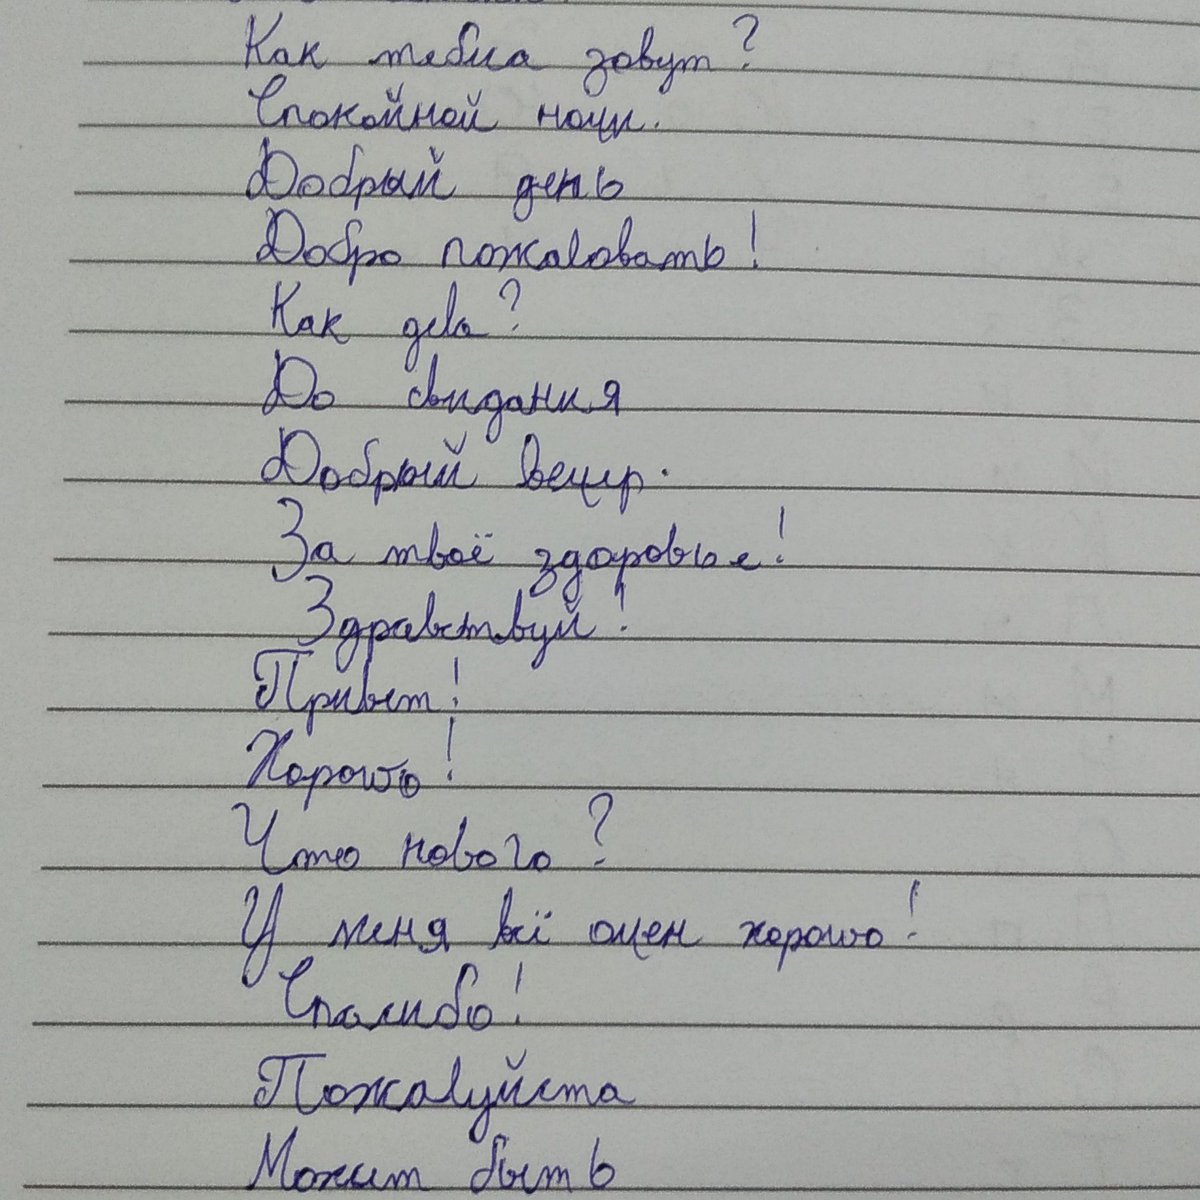 Как тебиа зовут?
Спокойной ночи.
Добрый день
Добро пожаловать!
Как дела?
До свидания
Добрый вечер.
За твоё здоровье!
Здравствуй!
Привет!
Хорошо!
Что нового?
У меня всё очен хорошо!
Спасибо!
Пожалуйста
Может быть